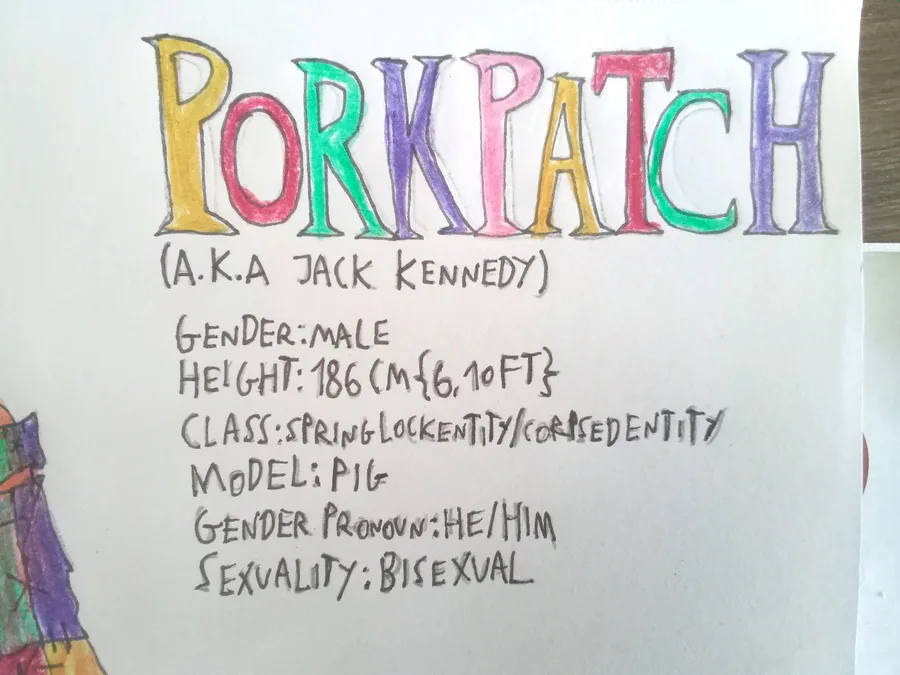 PORKPATCH
(A.K.A JACK KENNEDY)
GENDER:MALE
HEIGHT: 186 CM{6,10FT}
CLASS:SPRINGLOCKENTITY/CORPSEDENTITY
MODEL: PIG
GENDER PRONOUN:HE/HIM
SEXUALITY:BISEXUAL